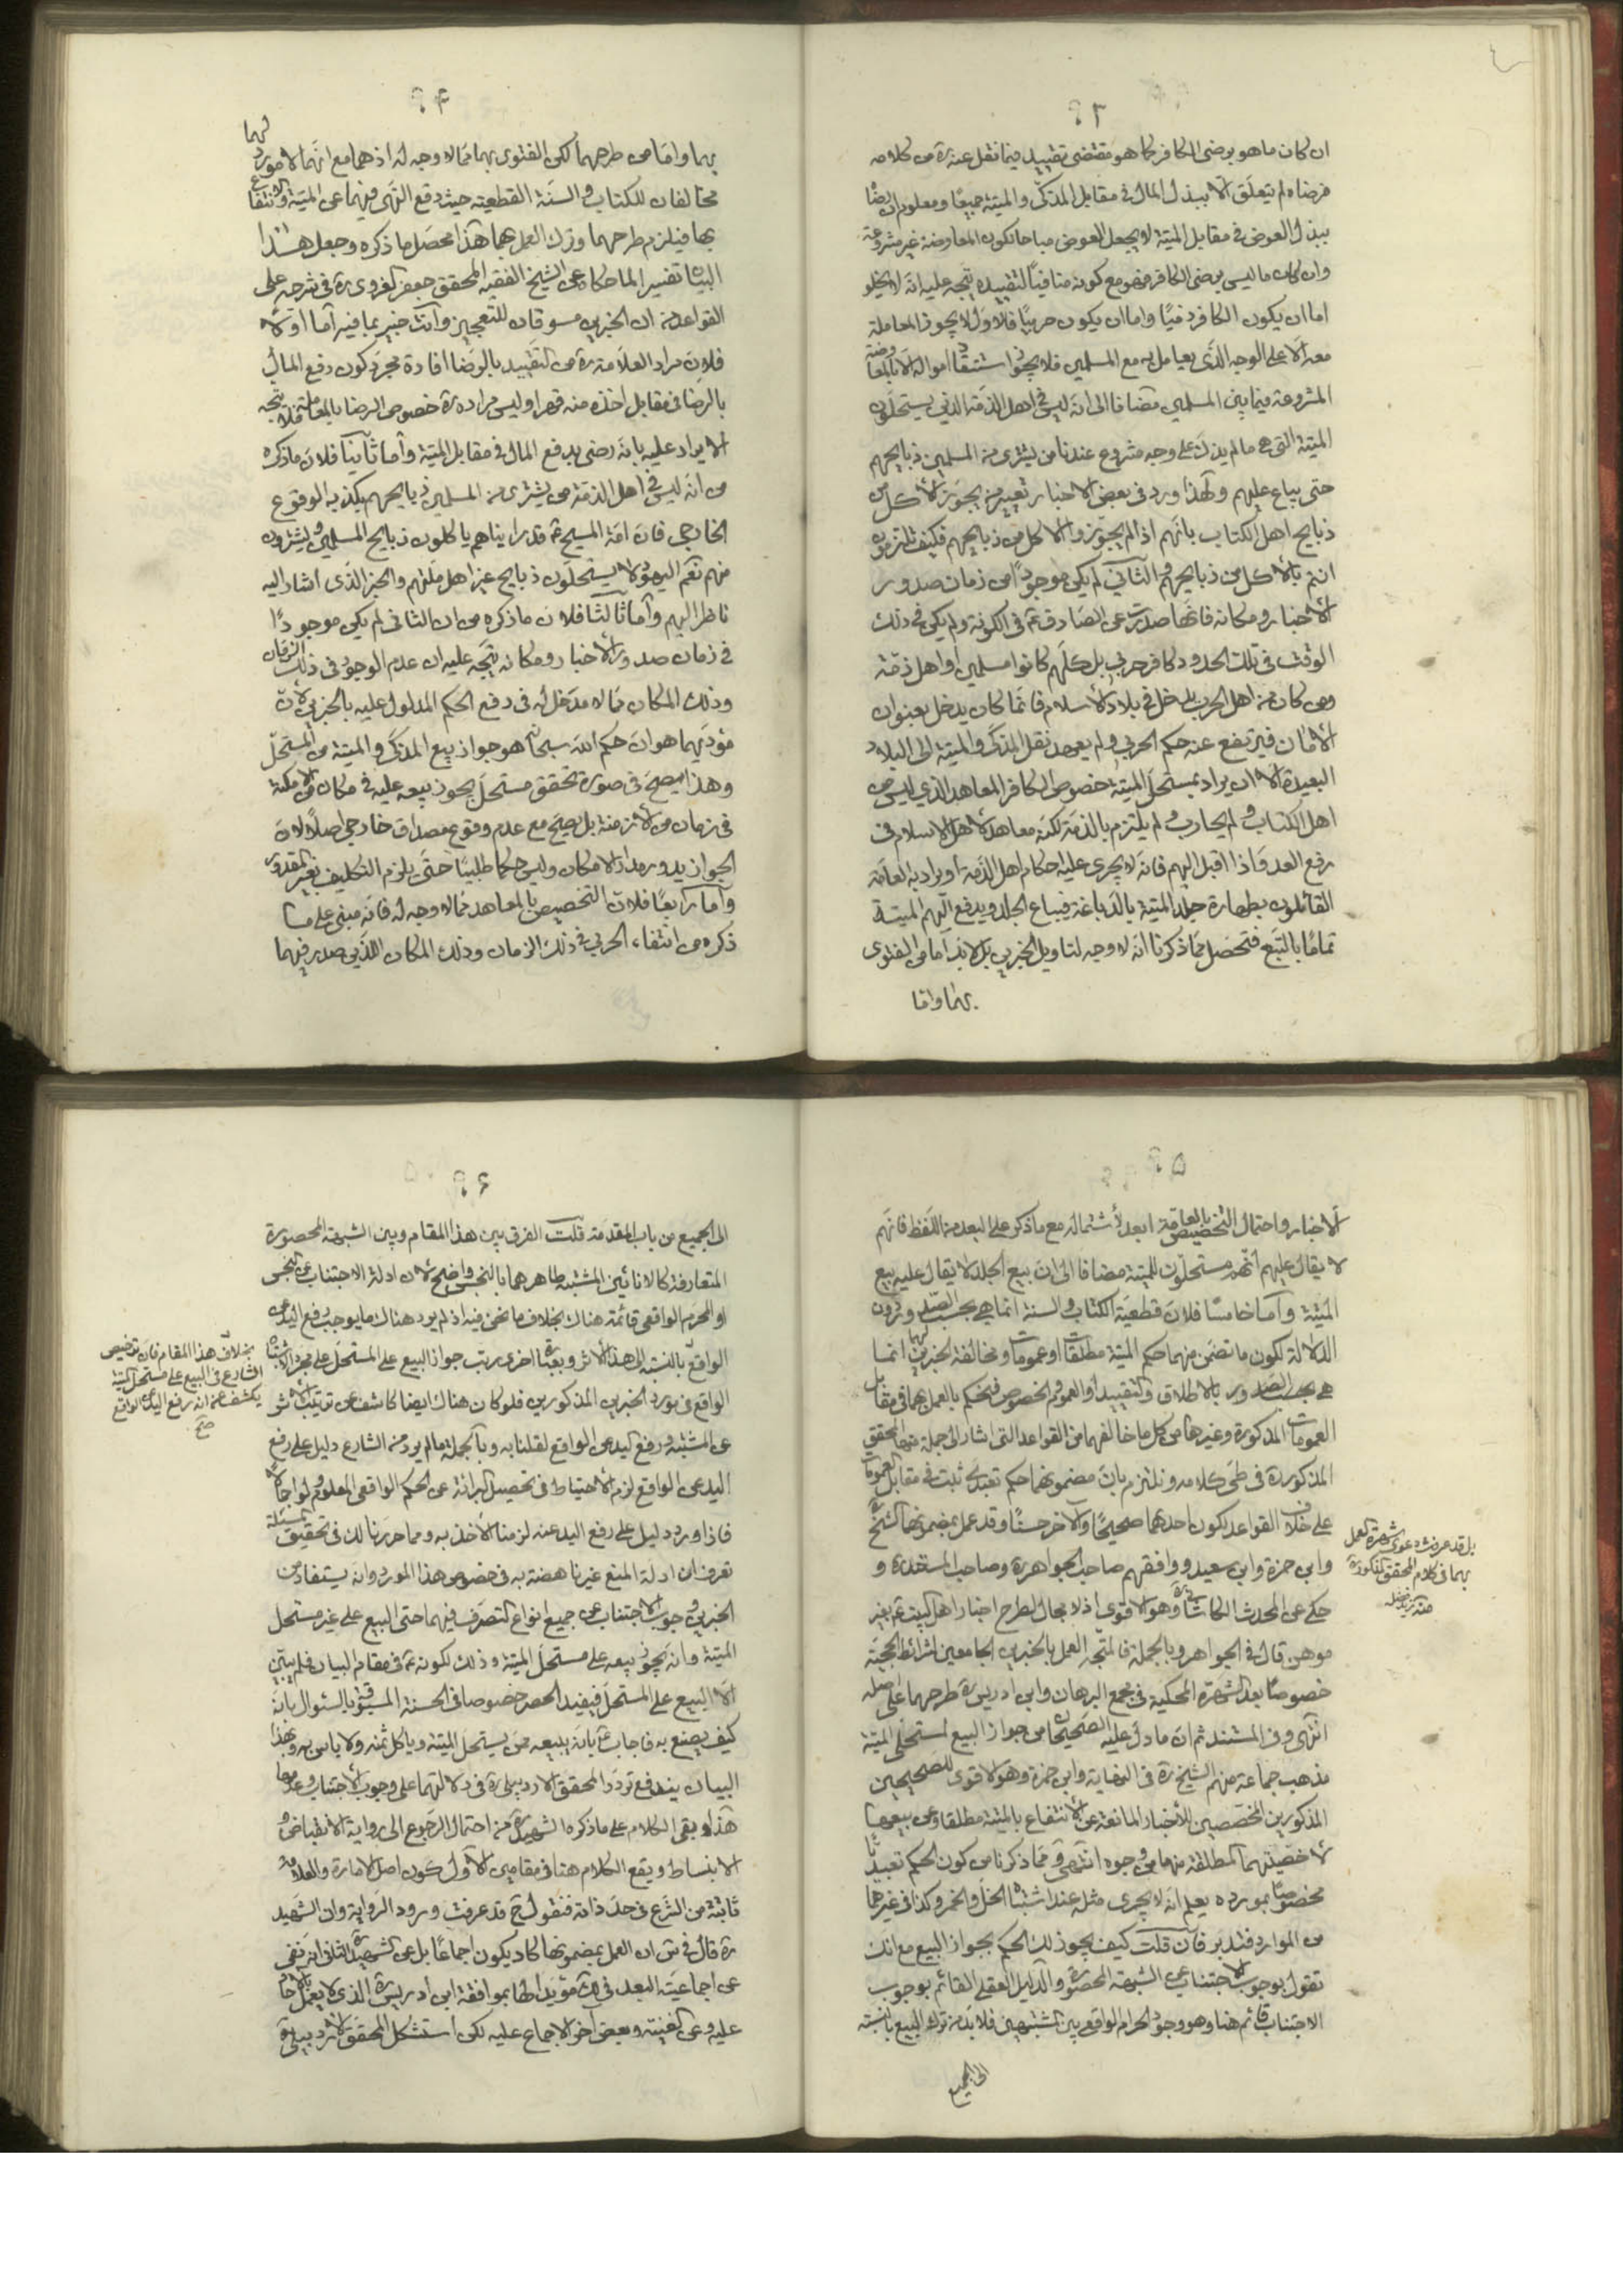 ٣
ان كان ما هو برضى الكافر كما هو مقتضى تقييده فيما نقل عنه ره من كلامه
فرضاه لم يتعلق الا ببذل المال في مقابل المذكى والميتة جميعًا ومعلوم ان رضا
ببذل العوض في مقابل الميتة لا يجعل العوض مباحا لكون المعاوضة غير مشروعة
وان كان ما ليس برضى الكافر فهو مع كونه منافيًا لتقييده يتجه عليه انه لا يخلو
اما ان يكون الكافر ذميًا واما ان يكون حربيًا فالاول لا يجوز المعاملة
معه الا على الوجه الذي يعامل به مع المسلمين فلا يجوز استنقاذ امواله الا بالمعاوضة
المشروعة فيما بين المسلمين مضافا الى انه ليس في اهل الذمة الذين يستحلون
الميتة التي هي ما لم يذك على وجه مشروع عندنا من يشترى من المسلمين ذبايحهم
حتى يباع عليهم ولهذا ورد في بعض الاخبار تعيير من يجوز الاكل من
ذبايح اهل الكتاب بانهم اذا لم يجوزوا الاكل من ذبايحهم فكيف تلتزمون
انتم بالاكل من ذبايحهم والثاني لم يكن موجودًا من زمان صدور
الاخبار ومكانه فانها صدرت عن الصادق ع في الكوفة ولم يكن في ذلك
الوقت في تلك الحدود كافر حربي بل كلهم كانوا مسلمين او اهل ذمة
ومن كان من اهل الحرب يدخل في بلاد الاسلام فانما كان يدخل بعنوان
الامان فيرتفع عنه حكم الحربي ولم يعهد نقل المذكى والميتة الى البلاد
البعيدة الا ان يراد بمستحل الميتة خصوص الكافر المعاهد الذي ليس من
اهل الكتاب ولم يحارب ولم يلتزم بالذمة لكنه معاهد لاهل الاسلام في
رفع العدو فاذا اقبل اليهم فانه لا يجرى عليه احكام اهل الذمة او يراد به العامة
القائلون بطهارة جلد الميتة بالدباغة فيباع الجلد ويدفع اليهم الميتة
تمامًا بالتبع فتحصل مما ذكرنا انه لا وجه لتاويل الخبرين بل لا بد اما من الفتوى
بهما واما
٤
بهما واما من طرحهما لكن الفتوى بهما مما لا وجه له اذ هما مع انهما لا مورد لهما
مخالفان للكتاب والسنة القطعية حيث وقع النهى فيهما عن الميتة والانتفاع
بها فيلزم طرحهما وترك العمل بهما هذا محصل ما ذكره وجعل هذا
البيان تفسيرا لما حكاه عن الشيخ الفقيه المحقق جعفر الغروى ره في شرحه على
القواعد من ان الخبرين مسوقان للتعجيز وانت خبير بما فيه اما اولا
فلان مراد العلامة ره من التقييد بالرضا افادة مجرد كون دفع المال
بالرضا في مقابل اخذه منه قهرا وليس مراده ره خصوص الرضا بالمعاملة فلا يتجه
الايراد عليه بانه رضى بدفع المال في مقابل الميتة واما ثانيا فلان ما ذكره
من انه ليس في اهل الذمة من يشترى من المسلمين ذبايحهم يكذبه الوقوع
الخارجى فان امة المسيح ع قد رايناهم ياكلون ذبايح المسلمين ويشترون
منهم نعم اليهود لا يستحلون ذبايح غير اهل ملتهم والخبر الذى اشار اليه
ناظر اليهم واما ثالثا فلان ما ذكره من ان الثانى لم يكن موجودًا
في زمان صدور الاخبار ومكانه يتجه عليه ان عدم الوجود في ذلك الزمان
وذلك المكان مما لا مدخل له في دفع الحكم المدلول عليه بالخبرين لان
مؤديهما هو ان حكم الله سبحانه هو جواز بيع المذكى والميتة من المستحل
وهذا يصح في صورة تحقق مستحل يجوز بيعه عليه في مكان من الامكنة
في زمان من الازمنة بل يصح مع عدم وقوع مصداق خارجى اصلًا لان
الجواز يدور مدار الامكان وليس حكما طلبيًا حتى يلزم التكليف بغير المقدور
واما رابعًا فلان التخصيص بالمعاهد مما لا وجه له فانه مبنى على ما
ذكره من انتفاء الحربى في ذلك الزمان وذلك المكان اللذين صدر فيهما
٥
الاخبار واحتمال التخصيص بالعامة ابعد لاشتماله مع ما ذكر على البعد من اللفظ فانهم
لا يقال عليهم انهم مستحلون للميتة مضافا الى ان بيع الجلد لا يقال عليه بيع
الميتة واما خامسًا فلان قطعية الكتاب والسنة انما هي بحسب الصدور دون
الدلالة لكون ما تضمن منهما حكم الميتة مطلقات او عمومات ومخالفة الخبرين لهما انما
هي بحسب الصدور بالاطلاق والتقييد او العموم والخصوص فنحكم بالعمل بهما في مقابل
العمومات المذكورة وغيرها من كل ما خالفهما من القواعد التى اشار الى جملة منها المحقق
المذكور ره في طى كلامه ونلتزم بان مضمونهما حكم تعبدى ثبت في مقابل العمومات
على خلاف القواعد لكون احدهما صحيحًا والاخر حسنًا وقد عمل بمضمونهما الشيخ
وابن حمزة وابن سعيد ووافقهم صاحب الجواهر ره وصاحب المستند ره و
حكى عن المحدث الكاشانى ره وهو الاقوى اذ لا مجال لطرح اخبار اهل البيت ع بغير
موهن قال في الجواهر وبالجملة فالمتجه العمل بالخبرين الجامعين لشرائط الحجية
خصوصا بعد الشهرة المحكية في مجمع البرهان وابن ادريس ره طرحهما على اصله
انتهى وفي المستند ثم ان ما دل عليه الصحيحان من جواز البيع لمستحلى الميتة
مذهب جماعة منهم الشيخ ره في النهاية وابن حمزة وهو الاقوى للصحيحين
المذكورين المخصصين للاخبار المانعة عن الانتفاع بالميتة مطلقا وعن بيعها
لاخصيتهما المطلقة منها من وجوه انتهى ومما ذكرنا من كون الحكم تعبديًا
مخصوصًا بمورده يعلم انه لا يجرى مثله عند اشتباه الخل والخمر وكذا في غيرهما
من الموارد فتدبر فان قلت كيف يجوز لك الحكم بجواز البيع مع انك
تقول بوجوب الاجتناب عن الشبهة المحصورة والدليل العقلى القائم بوجوب
الاجتناب قائم هنا وهو وجود الحرام الواقعى بين المشتبهين فلا بد من ترك البيع بالنسبة
الى الجميع
بل قد عرفت دعوى شهرة العمل
بهما في كلام المحقق المذكور ره
٦
الى الجميع من باب المقدمة قلت الفرق بين هذا المقام وبين الشبهة المحصورة
المتعارفة كالانائين المشتبه طاهرهما بالنجس واضح لان ادلة الاجتناب عن النجس
او المحرم الواقعى قائمة هناك بخلاف ما نحن فيه اذ لم يرد هناك ما يوجب رفع اليد عن
الواقع بالنسبة الى هذا الاثر وبعبارة اخرى رتب جواز البيع على المستحل على مجرد الاشتباه
الواقع في مورد الخبرين المذكورين فلو كان هناك ايضا كاشف عن ترتيب الاثر
عن المشتبه ورفع اليد عن الواقع لقلنا به وبالجملة ما لم يرد من الشارع دليل على رفع
اليد عن الواقع لزم الاحتياط في تحصيل البرائة عن الحكم الواقعى المعلوم لو اجمالًا
فاذا ورد دليل على رفع اليد عنه لزمنا الاخذ به ومما حررنا لك في تحقيق المسئلة
تعرف ان ادلة المنع غير ناهضة به في خصوص هذا المورد وانه يستفاد من
الخبرين وجوب الاجتناب عن جميع انواع التصرف فيهما حتى البيع على غير مستحل
الميتة وانه يجوز بيعه على مستحل الميتة وذلك لكونه ع في مقام البيان فلم يبين
الا البيع على المستحل فيفيد الحصر خصوصا في الحسنة المسبوقة بالسئوال بانه
كيف يصنع به فاجاب ع بانه يبيعه ممن يستحل الميتة وياكل ثمنه ولا باس به وبهذا
البيان يندفع تردد المحقق الاردبيلى ره في دلالتهما على وجوب الاجتناب وعدمها
هذا وبقى الكلام على ما ذكره الشهيد ره من احتمال الرجوع الى رواية الانقباض و
الانبساط ويقع الكلام هنا في مقامين الاول كون اصل الامارة والعلامة
ثابتة من الشرع في حد ذاته فنقول ح قد عرفت ورود الرواية وان الشهيد
ره قال في س ان العمل بمضمونها كاد يكون اجماعًا بل عن الشهيد الثانى انه نفى
عن اجماعيته البعد في لك مؤيدا لها بموافقة ابن ادريس ره الذى لا يعمل بالاحاد
عليه وعن الغنية وبعض اخر الاجماع عليه لكن استشكل المحقق الاردبيلى ره
بخلاف هذا المقام فان ترخيص
الشارع في البيع على مستحل الميتة
يكشف عن انه رفع اليد عن الواقع
صح